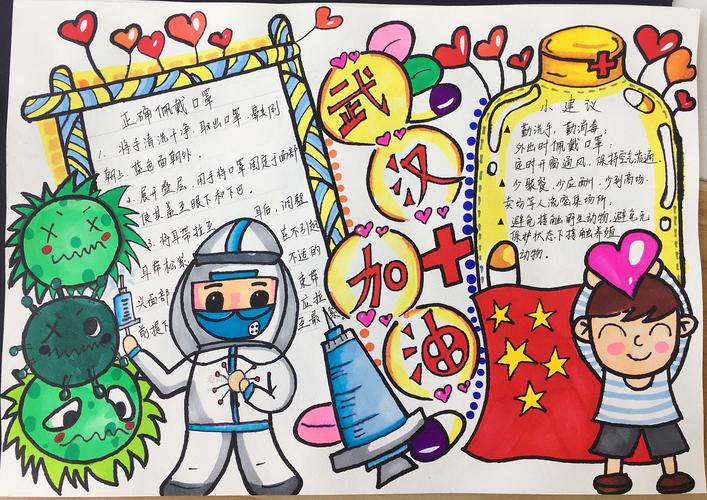 正确佩戴口罩
1、将手清洗干净,取出口罩,鼻夹侧
朝上,蓝色面朝外.
2、展开叠层,用手将口罩固定于面部
使其盖至眼下和下巴.
3、将耳带挂至 耳后,调整
耳带松紧 至不引起
不适的
头面部 支带
应拉
前提下 至最
武
汉
加
油
小建议
▲ 勤洗手,勤消毒;
外出时佩戴口罩;
定时开窗通风,保持空气流通.
▲ 少聚餐,少应酬,少到商场,
卖场等人流密集场所.
▲ 避免接触野生动物,避免无
保护状态下接触养殖
动物.